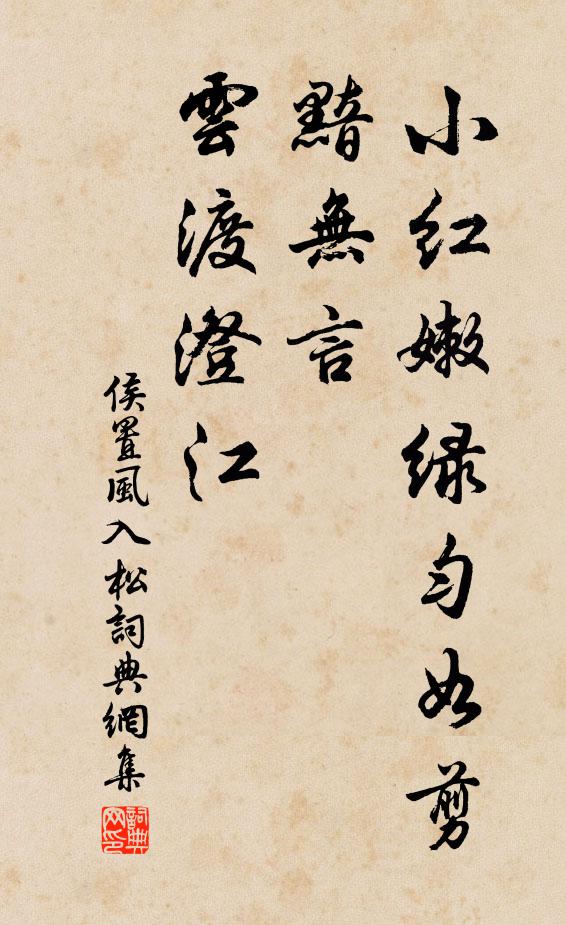 小红嫩绿匀如剪
黯無言
雲渡澄江
侯置風入松詞典網集
詞典网印